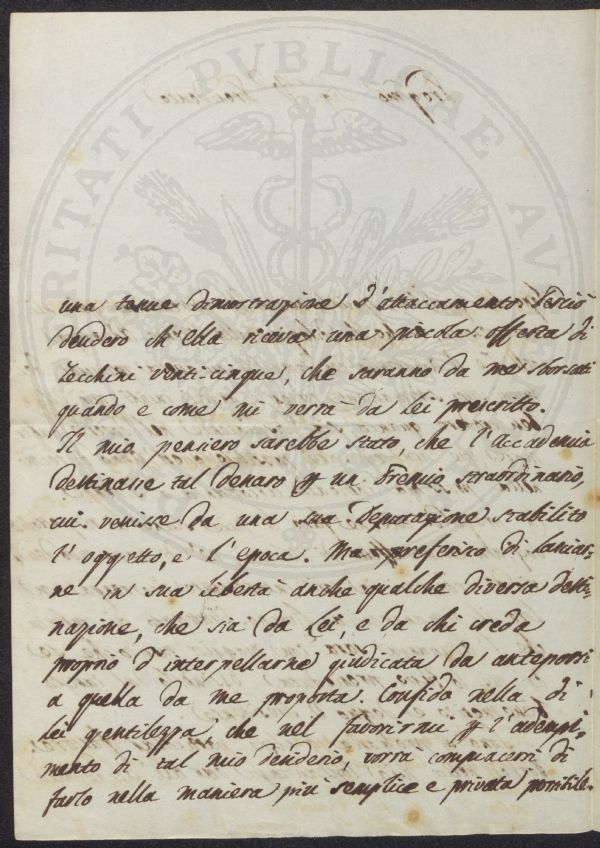 PROSPERITATI PVBLICAE AV
una tenue dimostrazione d'attaccamento. Perciò
desidero ch'ella riceva una piccola offerta di
Zecchini venti-cinque, che saranno da me sborsati
quando e come mi verrà da Lei prescritto.
Il mio pensiero sarebbe stato, che l'accademia
destinasse tal denaro p un Premio straordinario,
cui venisse da una sua Deputazione stabilito
l'oggetto, e l'epoca. Ma preferisco di lasciar-
ne in sua libertà anche qualche diversa desti-
nazione, che sia da Lei, e da chi creda
proprio d'interpellarne giudicata da anteporsi
a quella da me proposta. Confido nella di
Lei gentilezza, che nel favorirmi p l'adempi-
mento di tal mio desiderio, vorrà compiacersi di
farlo nella maniera più semplice e privata possibile.